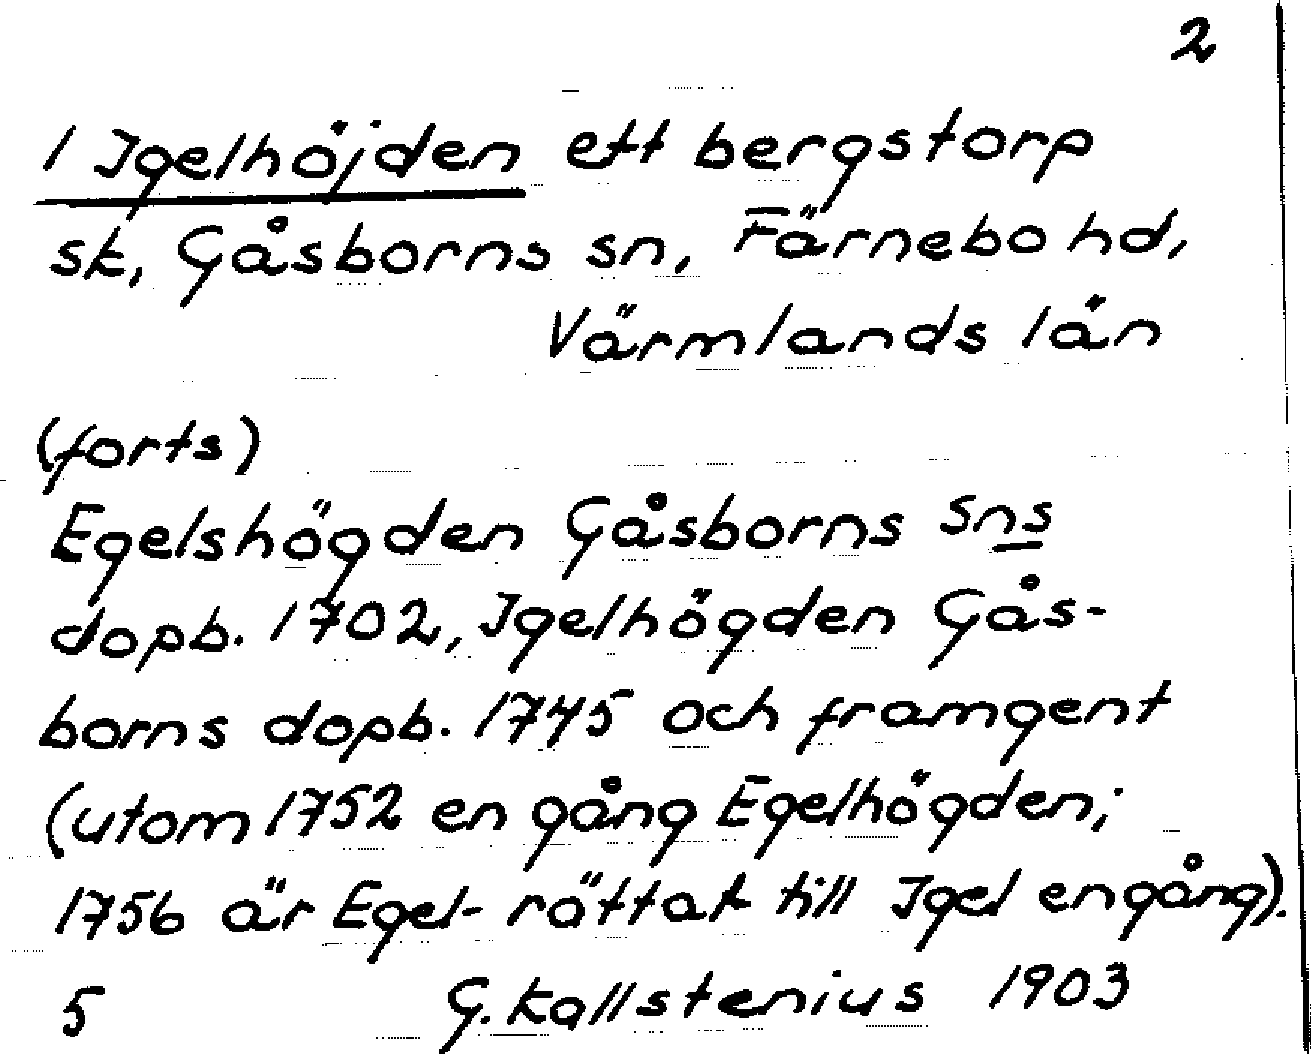 2
1 Igelhöjden ett bergstorp
sk, Gåsborns sn, Färnebo hd,
Värmlands län
(forts)
Egelshögden Gåsborns sns
dopb. 1702, Igelhögden Gås-
borns dopb. 1745 och framgent
(utom 1752 en gång Egelhögden;
1756 är Egel- rättat till Igel en gång).
5 G. Kallstenius 1903